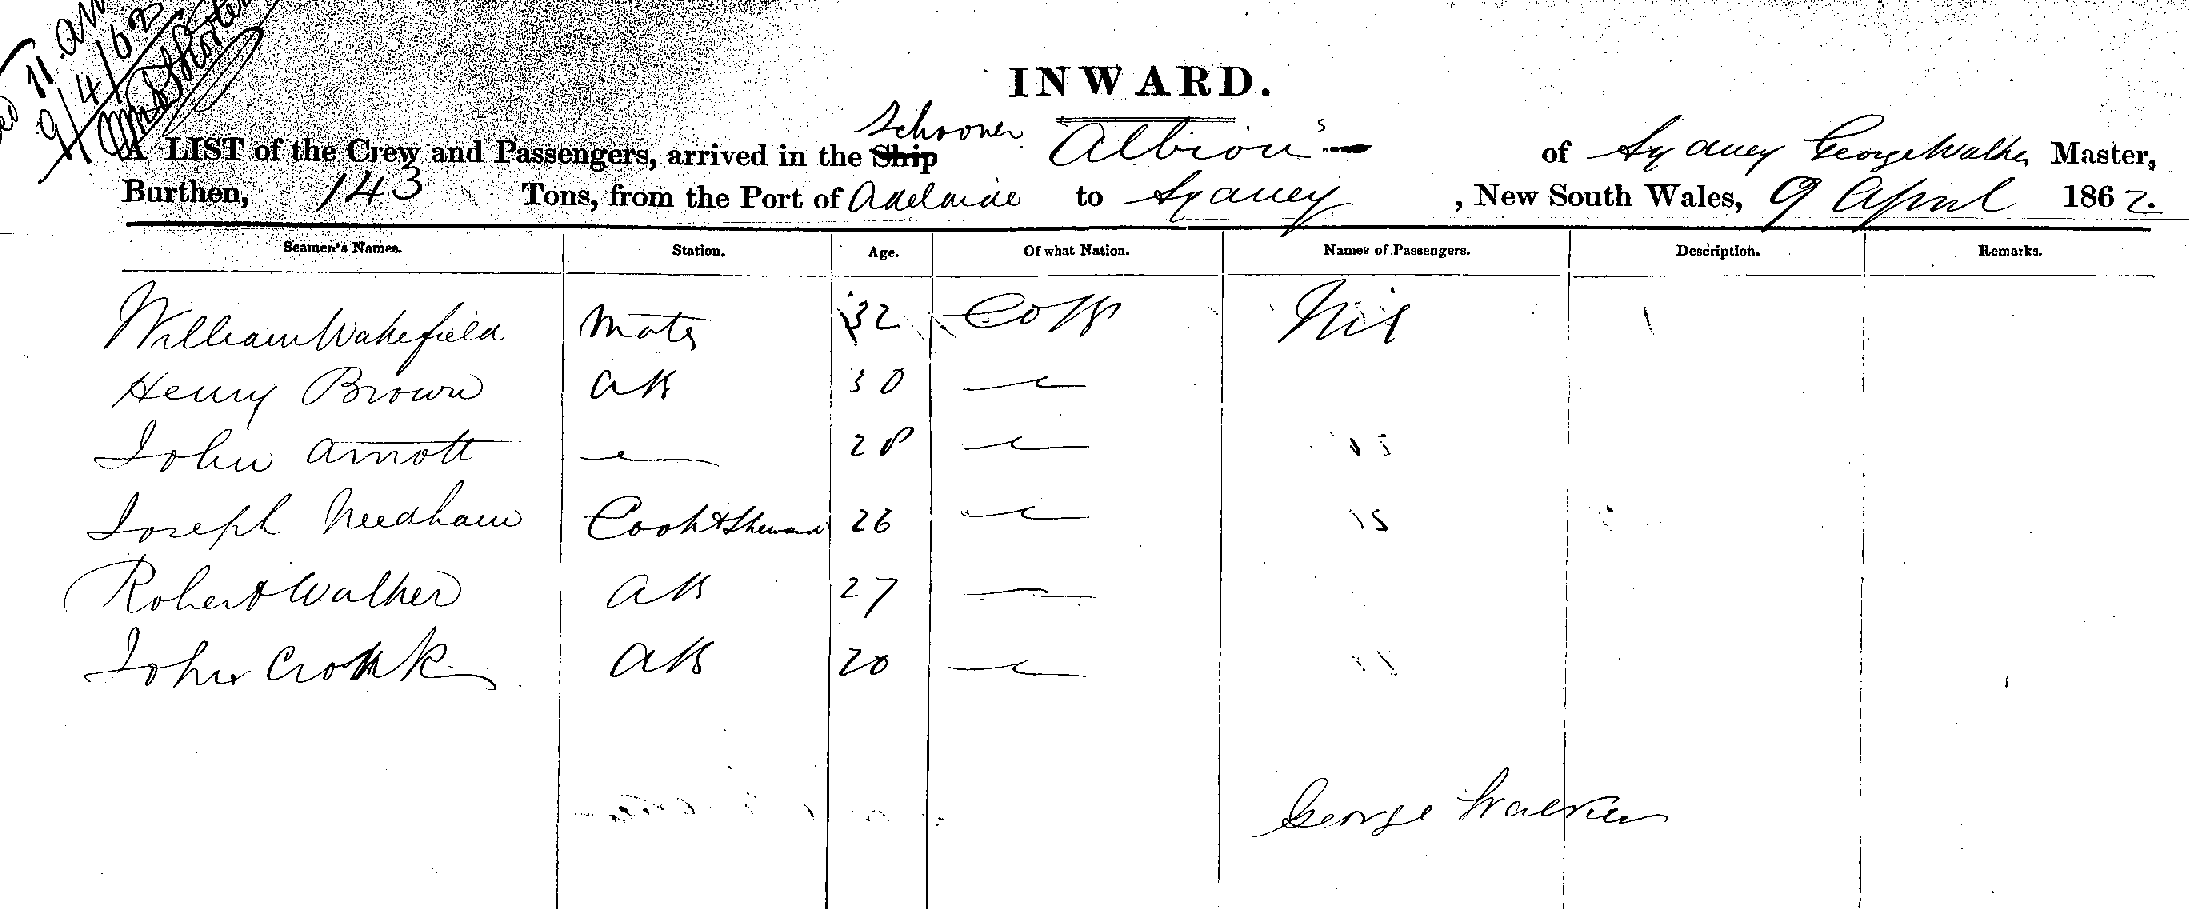 11 am
9/4/62
INWARD.
Schooner
A LIST of the Crew and Passengers, arrived in the Ship Albion of Sydney George Walker Master,
Burthen, 143 Tons, from the Port of Adelaide to Sydney, New South Wales, 9 April 1862.
Seamen's Names. Station. Age. Of what Nation. Names of Passengers. Description. Remarks.
William Wakefield Mate 32 Nil
Henry Brown AB 30
John Arnott 28
Joseph Needham Cook & Steward 26
Robert Walker AB 27
John AB 20
George Walker